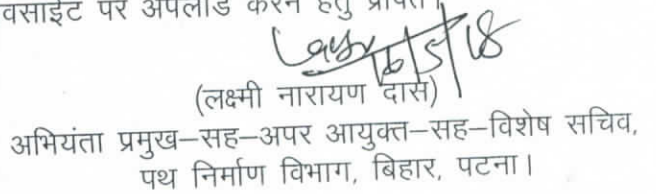 वेसाईट पर अपलोड करने हेतु प्रेषित।
16/5/18
(लक्ष्मी नारायण दास)
अभियंता प्रमुख–सह–अपर आयुक्त–सह–विशेष सचिव,
पथ निर्माण विभाग, बिहार, पटना।